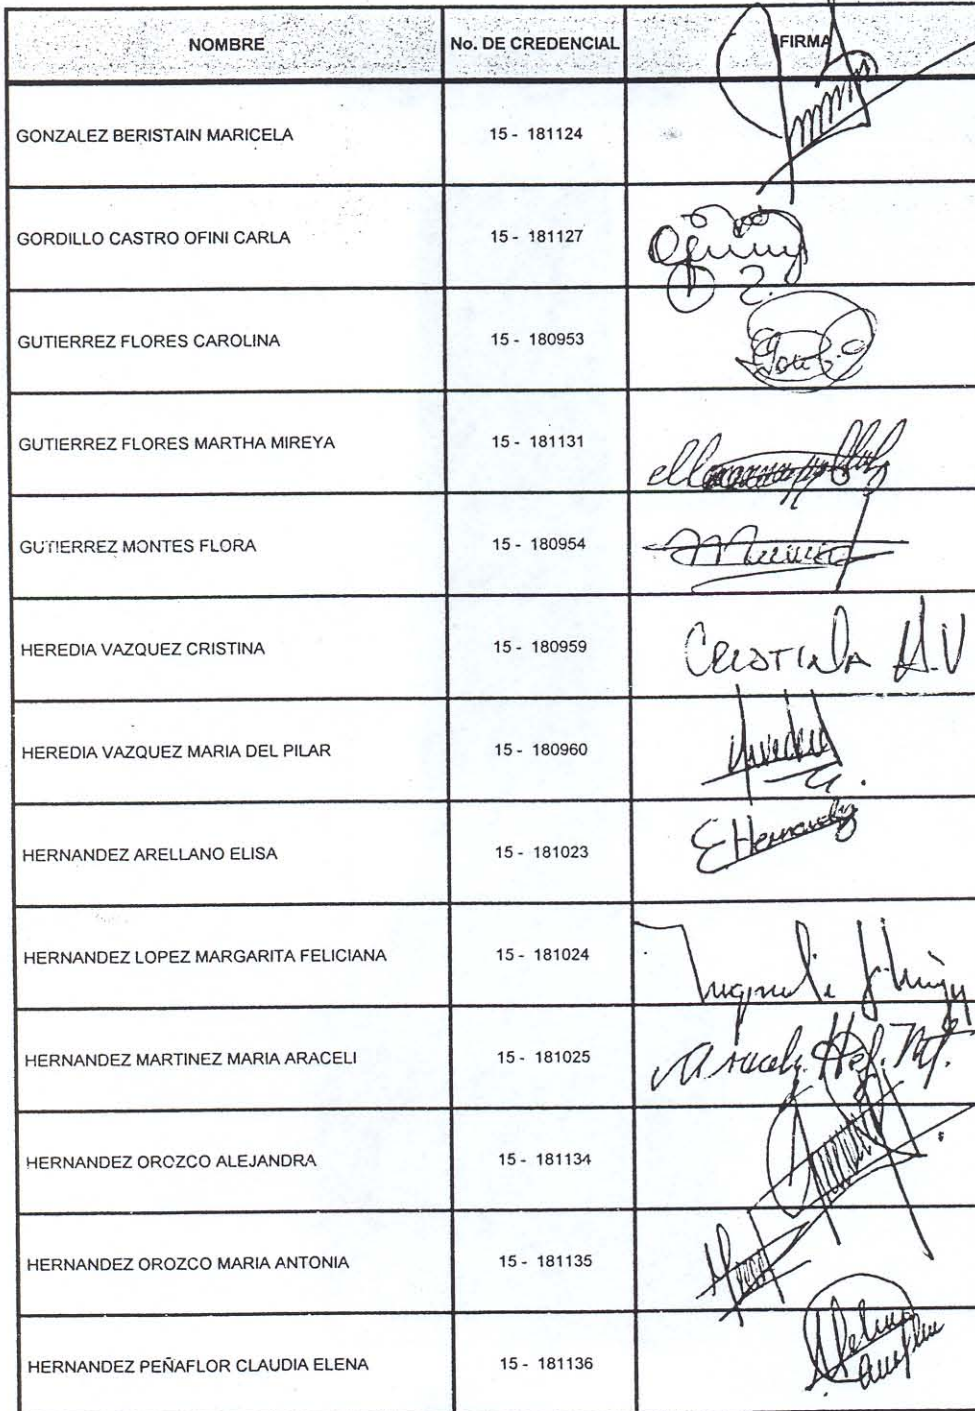 NOMBRE No. DE CREDENCIAL FIRMA
GONZALEZ BERISTAIN MARICELA 15 - 181124
GORDILLO CASTRO OFINI CARLA 15 - 181127
GUTIERREZ FLORES CAROLINA 15 - 180953
GUTIERREZ FLORES MARTHA MIREYA 15 - 181131
GUTIERREZ MONTES FLORA 15 - 180954
HEREDIA VAZQUEZ CRISTINA 15 - 180959 CRISTINA H.V
HEREDIA VAZQUEZ MARIA DEL PILAR 15 - 180960
HERNANDEZ ARELLANO ELISA 15 - 181023 E Hernandez
HERNANDEZ LOPEZ MARGARITA FELICIANA 15 - 181024
HERNANDEZ MARTINEZ MARIA ARACELI 15 - 181025
HERNANDEZ OROZCO ALEJANDRA 15 - 181134
HERNANDEZ OROZCO MARIA ANTONIA 15 - 181135
HERNANDEZ PEÑAFLOR CLAUDIA ELENA 15 - 181136